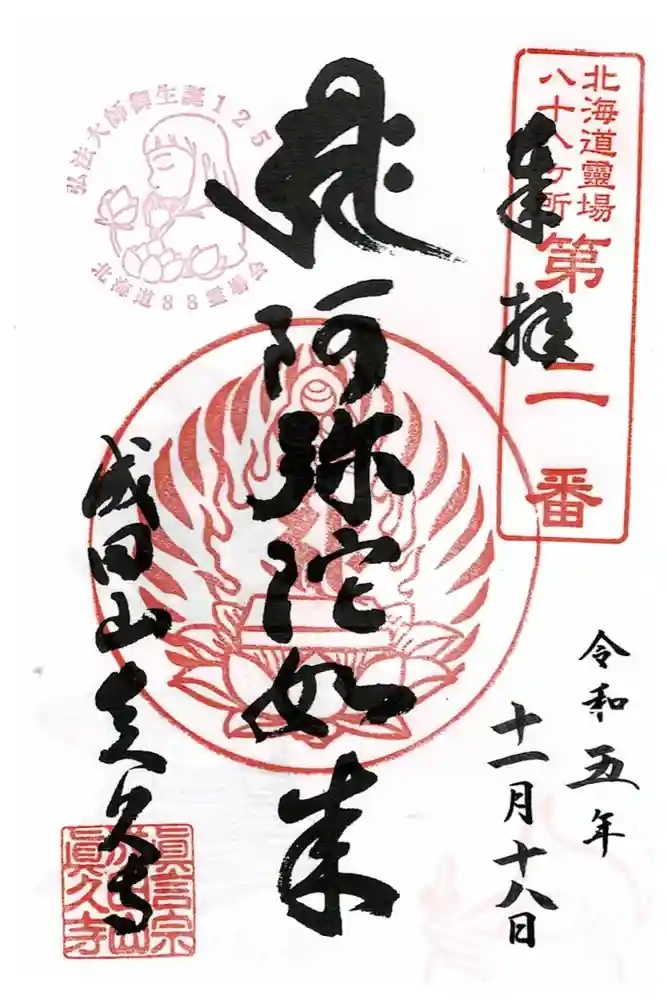 北海道靈場
八十八ケ所
第二番
奉拝
令和五年
十一月十八日
ह्रीः
阿弥陀如来
弘法大師御生誕125
北海道88霊場会
成田山真久寺
眞言宗
成田山
眞久寺